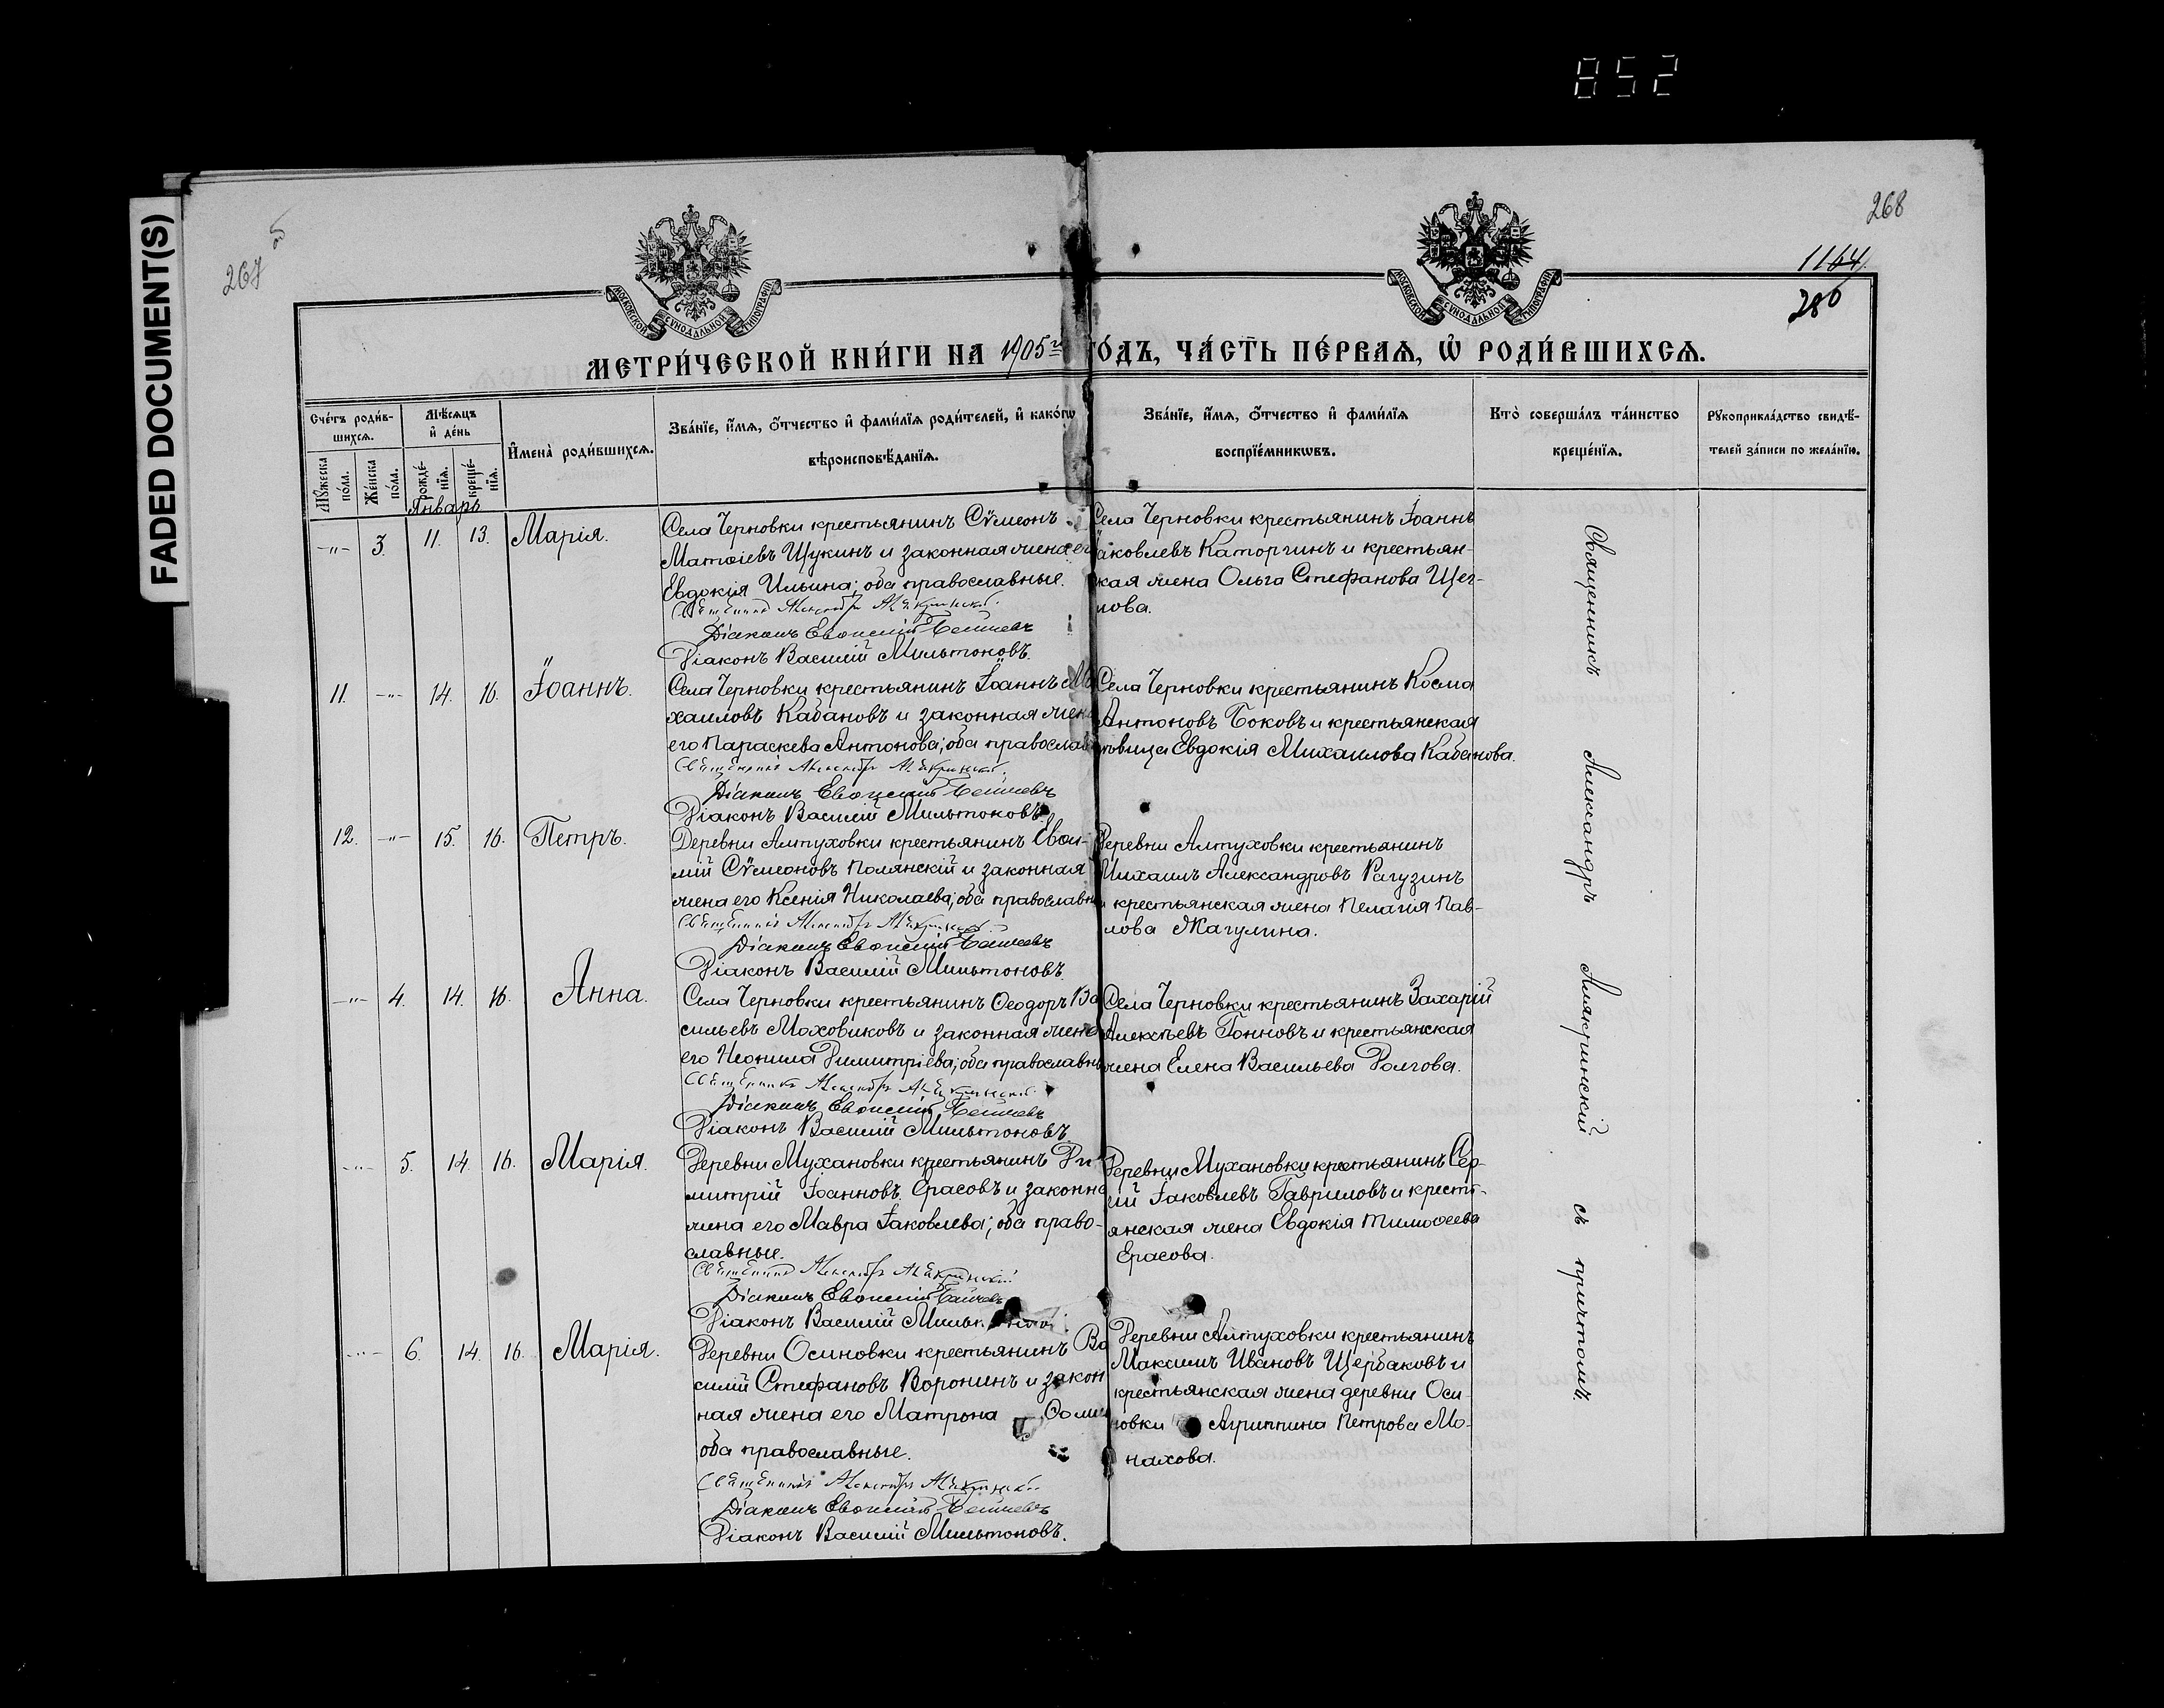 852
FADED DOCUMENT(S)
5
267
268
1164
280
МОСКОВСКОЙ СУНОДАЛЬНОЙ ТИПОГРАФІИ
МОСКОВСКОЙ СУНОДАЛЬНОЙ ТИПОГРАФІИ
МЕТРИ́ЧЕСКОЙ КНИ́ГИ НА 1905 го́дъ, ЧА́СТЬ ПЕ́РВАѦ, Ѡ҆ РОДИ́ВШИХСѦ.
Сче́тъ роди́в-
шихсѧ.
Мѣ́сѧцъ
и҆ де́нь
И҆мена̀ роди́вшихсѧ.
Зва́нїе, и҆́мѧ, ѻ҆́тчество и҆ фами́лїѧ роди́телей, и҆ како́гѡ
вѣроисповѣ́данїѧ.
Зва́нїе, и҆́мѧ, ѻ҆́тчество и҆ фами́лїѧ
воспрїе́мникѡвъ.
Кто̀ соверша́лъ та́инство
креще́нїѧ.
Рꙋкоприкла́дство свидѣ́-
телей за́писи по жела́нїю.
Мꙋ́жеска
по́ла.
Же́нска
по́ла.
рожде́-
нїѧ.
креще́-
нїѧ.
Январь
-"- 3. 11. 13. Марія.
Села Черновки крестьянинъ Сѵмеонъ
Матѳіевъ Щукинъ и законная жена ег
Евдокія Ильина; оба православные.
Священникъ Александръ Алякринскій.
Діаконъ Евѳимій
Діаконъ Василій Мильтоновъ.
Села Черновки крестьянинъ Іоаннъ
Іаковлевъ Каторгинъ и крестьян-
ская жена Ольга Стефанова Щег-
лова.
11. -"- 14. 16. Іоаннъ.
Села Черновки крестьянинъ Іоаннъ Ми
хаиловъ Кабановъ и законная жена
его Параскева Антонова; оба православ
Священникъ Александръ Алякринскій.
Діаконъ Евѳимій
Діаконъ Василій Мильтоновъ.
Села Черновки крестьянинъ Косма
Антоновъ Боковъ и крестьянская
Евдокія Михаилова Кабанова.
12. -"- 15. 16. Петръ.
Деревни Алтуховки крестьянинъ Евѳи-
мій Сѵмеоновъ Полянскій и законная
жена его Ксенія Николаева; оба православн
Священникъ Александръ Алякринскій.
Діаконъ Евѳимій
Діаконъ Василій Мильтоновъ.
Деревни Алтуховки крестьянинъ
Михаилъ Александровъ Рагузинъ
и крестьянская жена Пелагія Пав-
лова Жагулина.
-"- 4. 14. 16. Анна.
Села Черновки крестьянинъ Ѳеодоръ Ва
сильевъ Моховиковъ и законная жена
его Неонила Димитріева; оба православн
Священникъ Александръ Алякринскій.
Діаконъ Евѳимій
Діаконъ Василій Мильтоновъ.
Села Черновки крестьянинъ Захарій
Алексѣевъ и крестьянская
жена Елена Васильева Долгова.
-"- 5. 14. 16. Марія.
Деревни Мухановки крестьянинъ Ди
митрій Іоанновъ Ерасовъ и законна
жена его Мавра Іаковлева; оба право-
славные.
Священникъ Александръ Алякринскій
Діаконъ Евѳимій
Діаконъ Василій
Деревни Мухановки крестьянинъ Сер-
гій Іаковлевъ Гавриловъ и кресть-
янская жена Евдокія Тимоѳеева
Ерасова.
-"- 6. 14. 16. Марія.
Деревни Осиновки крестьянинъ Ва
силій Стефановъ Воронинъ и закон
ная жена его Матрона
оба православные.
Священникъ Александръ Алякринскій
Діаконъ Евѳимій
Діаконъ Василій Мильтоновъ.
Деревни Алтуховки крестьянинъ
Максимъ Ивановъ Щербаковъ и
крестьянская жена деревни Оси-
новки Агриппина Петрова Мо-
нахова.
Священникъ Александръ Алякринскій съ причтомъ.